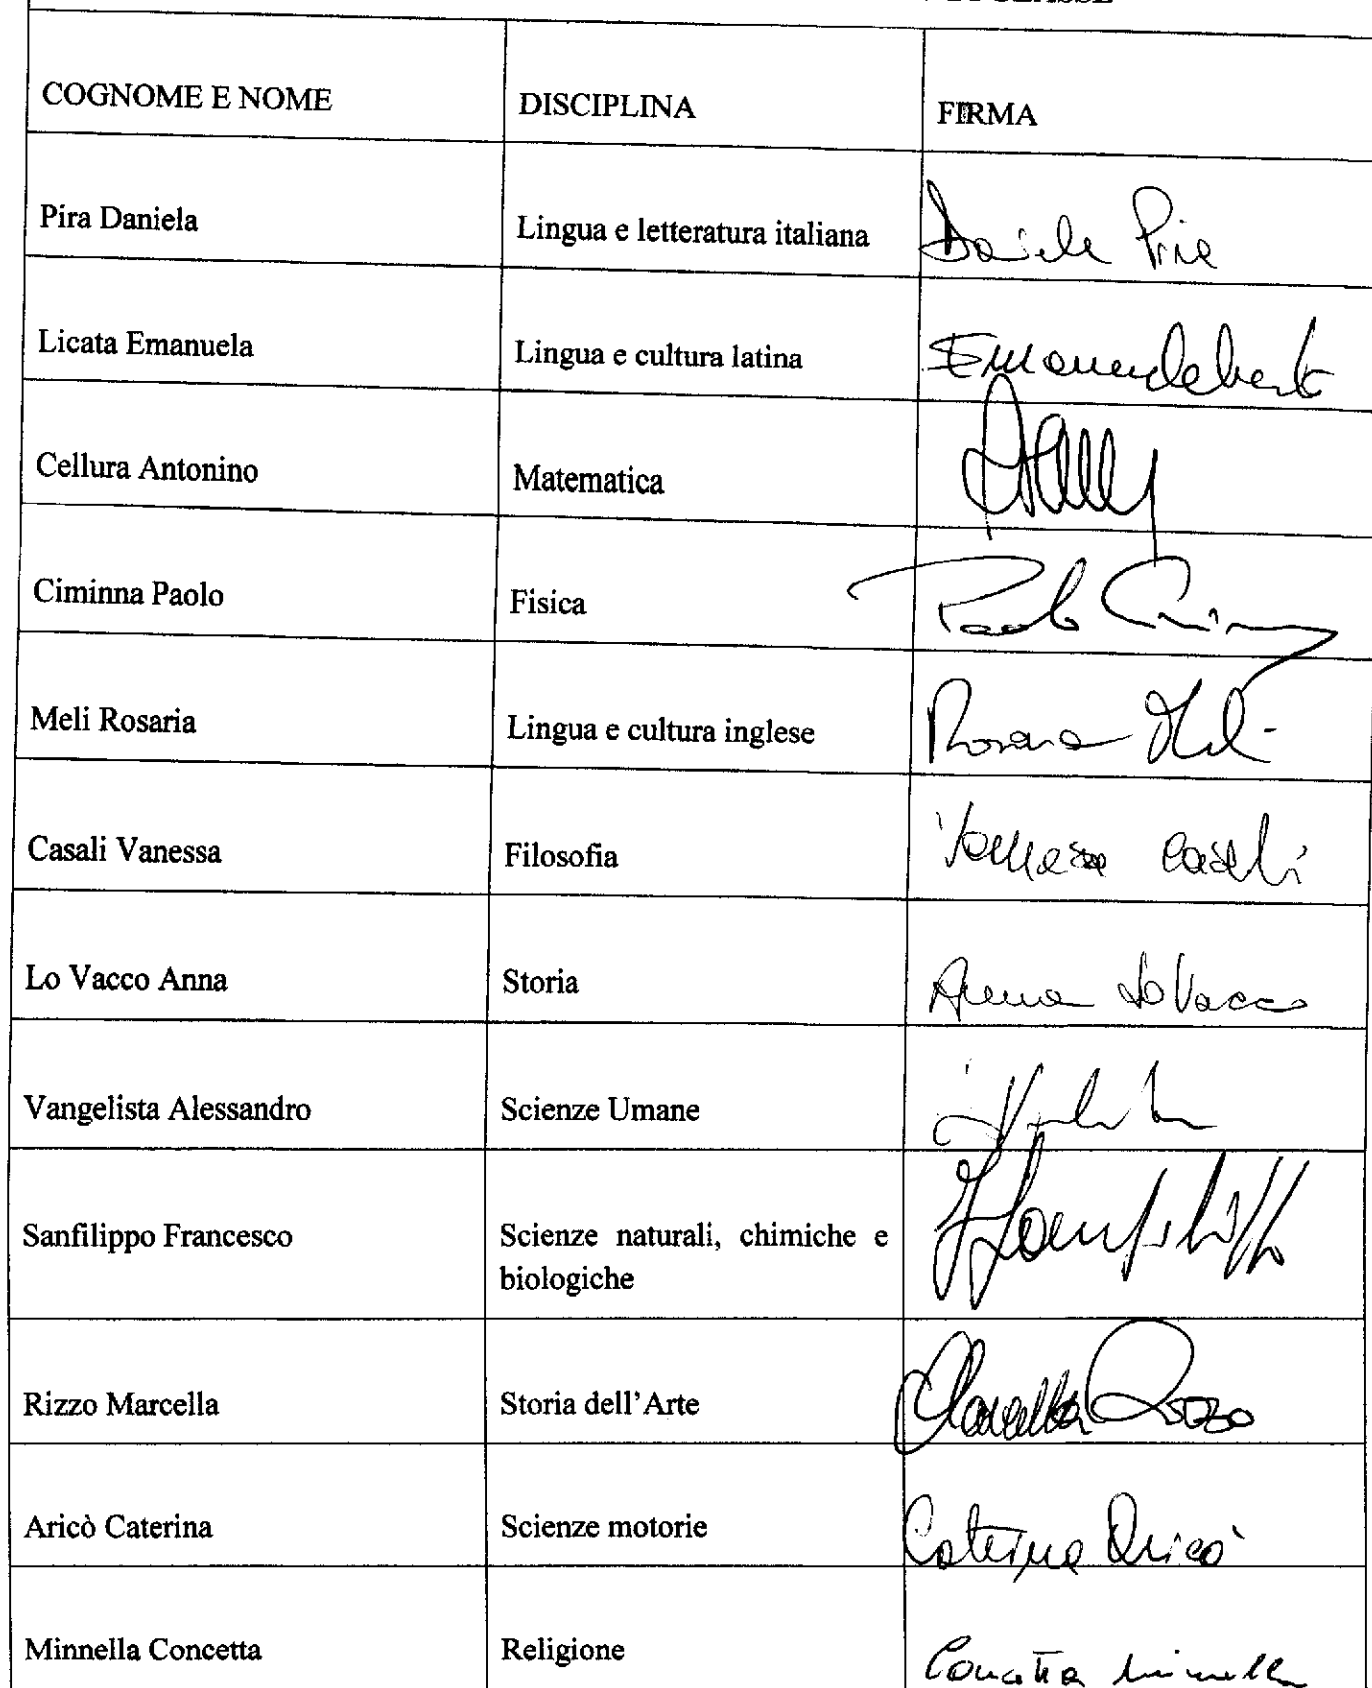 CLASSE
COGNOME E NOME DISCIPLINA FIRMA
Pira Daniela Lingua e letteratura italiana Daniela Pira
Licata Emanuela Lingua e cultura latina
Cellura Antonino Matematica
Ciminna Paolo Fisica Paolo
Meli Rosaria Lingua e cultura inglese Rosaria Meli
Casali Vanessa Filosofia Vanessa Casali
Lo Vacco Anna Storia Anna Lo Vacco
Vangelista Alessandro Scienze Umane
Sanfilippo Francesco Scienze naturali, chimiche e
biologiche
Rizzo Marcella Storia dell'Arte Marcella Rizzo
Aricò Caterina Scienze motorie Caterina Aricò
Minnella Concetta Religione Concetta Minnella